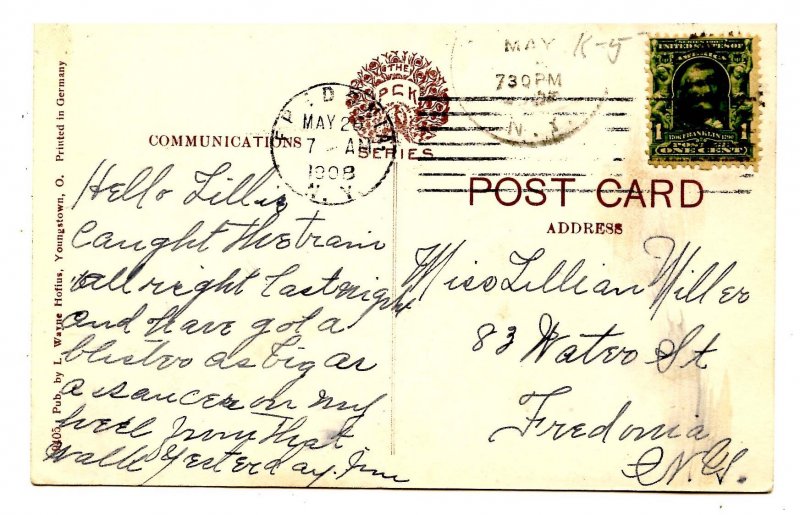 Printed in Germany
Pub. by I. Wayne Hofius, Youngstown, O.
COMMUNICATIONS
THE
PCK
SERIES
MAY 20
7 - AM
1908
N. Y.
MAY
730PM
N. Y.
K-5
SERIES 1902
UNITED STATES OF
AMERICA
1 1706 FRANKLIN 1790 1
POSTAGE
ONE CENT
POST CARD
ADDRESS
Hello Lillie
Caught the train
all right last night
and have got a
blister as big as
a saucer on my
heel from that
walk yesterday.
Miss Lillian Miller
83 Water St
Fredonia
N.Y.